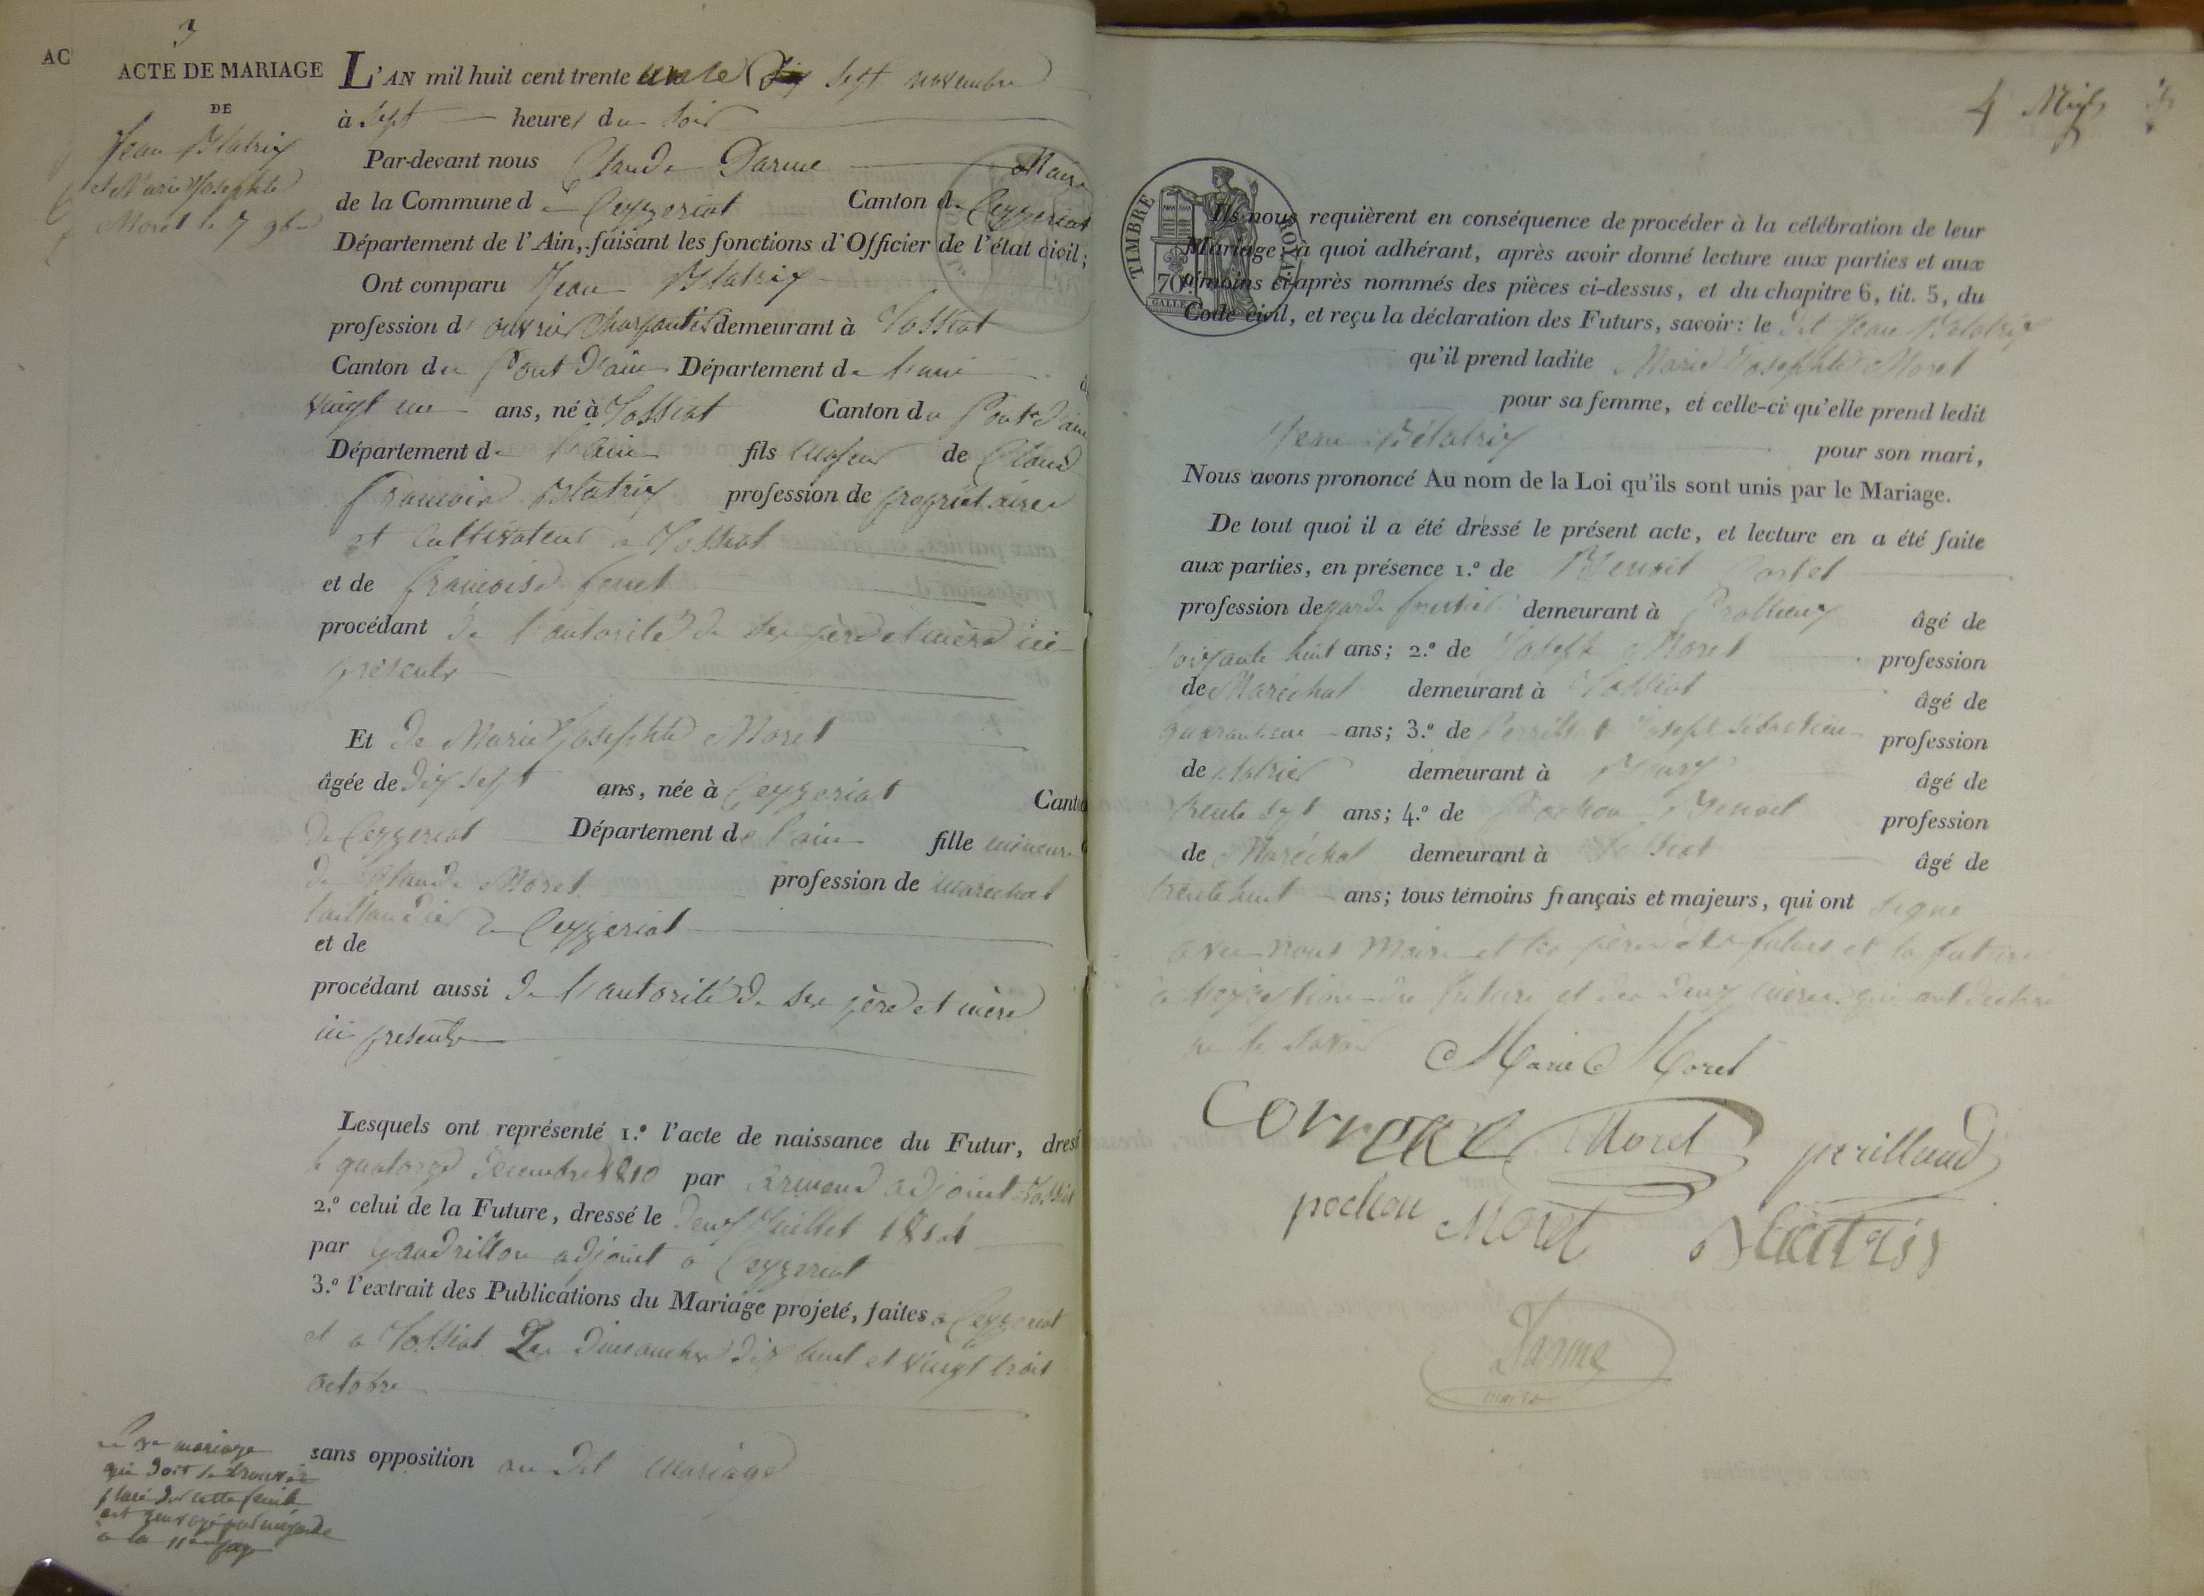 3
AC
ACTE DE MARIAGE
DE
Jean Blatrix
et Marie Josephte
Moret le 7 9bre
L'AN mil huit cent trente un le sept novembre
à Sept heures du soir
Par-devant nous Claude Darme Maire
de la Commune de Ceyzeriat Canton de Ceyzeriat
Département de l'Ain, faisant les fonctions d'Officier de l'état civil;
Ont comparu Jean Blatrix
profession d'ouvrier charpentier demeurant à Tossiat
Canton du Pont d'ain Département de l'ain
vingt un ans, né à Tossiat Canton du Pont d'ain
Département de l'ain fils majeur de Claude
francois Blatrix profession de propriétaire
et cultivateur a Tossiat
et de francoise
procédant de l'autorité de ses père et mère ici
présents
Et de Marie Josephte Moret
âgée de dix sept ans, née à Ceyzeriat Canton
de Ceyzeriat Département de l'ain fille mineure
de Claude Moret profession de marechal
taillandier a Ceyzeriat
et de
procédant aussi de l'autorité de ses père et mère
ici presents
Lesquels ont représenté 1.º l'acte de naissance du Futur, dressé
le quatorze Décembre 1810 par adjoint a Tossiat
2.º celui de la Future, dressé le deux Juillet 1814
par Gaudrillon adjoint a Ceyzeriat
3.º l'extrait des Publications du Mariage projeté, faites a Ceyzeriat
et a Tossiat Les dimanches dix huit et vingt trois
octobre
sans opposition au dit mariage
mariage
qui doit se trouver
placé sur cette feuille
est par mégarde
a la 11eme page
4
TIMBRE ROYAL
70
Ils nous requièrent en conséquence de procéder à la célébration de leur
Mariage; à quoi adhérant, après avoir donné lecture aux parties et aux
témoins ci-après nommés des pièces ci-dessus, et du chapitre 6, tit. 5, du
Code civil, et reçu la déclaration des Futurs, savoir: le dit Jean Blatrix
qu'il prend ladite Marie Josephte Moret
pour sa femme, et celle-ci qu'elle prend ledit
Jean Blatrix pour son mari,
Nous avons prononcé Au nom de la Loi qu'ils sont unis par le Mariage.
De tout quoi il a été dressé le présent acte, et lecture en a été faite
aux parties, en présence 1.º de Benoit
profession de garde forestier demeurant à âgé de
soixante huit ans; 2.º de Joseph Moret profession
de Maréchal demeurant à Tossiat âgé de
quarante ans; 3.º de Joseph Sebastien profession
de demeurant à Bourg âgé de
trente sept ans; 4.º de Pochon Benoit profession
de Maréchal demeurant à Tossiat âgé de
trente huit ans; tous témoins français et majeurs, qui ont signé
avec nous Maire et les pères des futurs et la future
a l'exception du futur et des deux mères qui ont déclaré
ne le savoir
Marie Moret
Moret
perillaud
pochon Moret Blatrix
Darme
maire